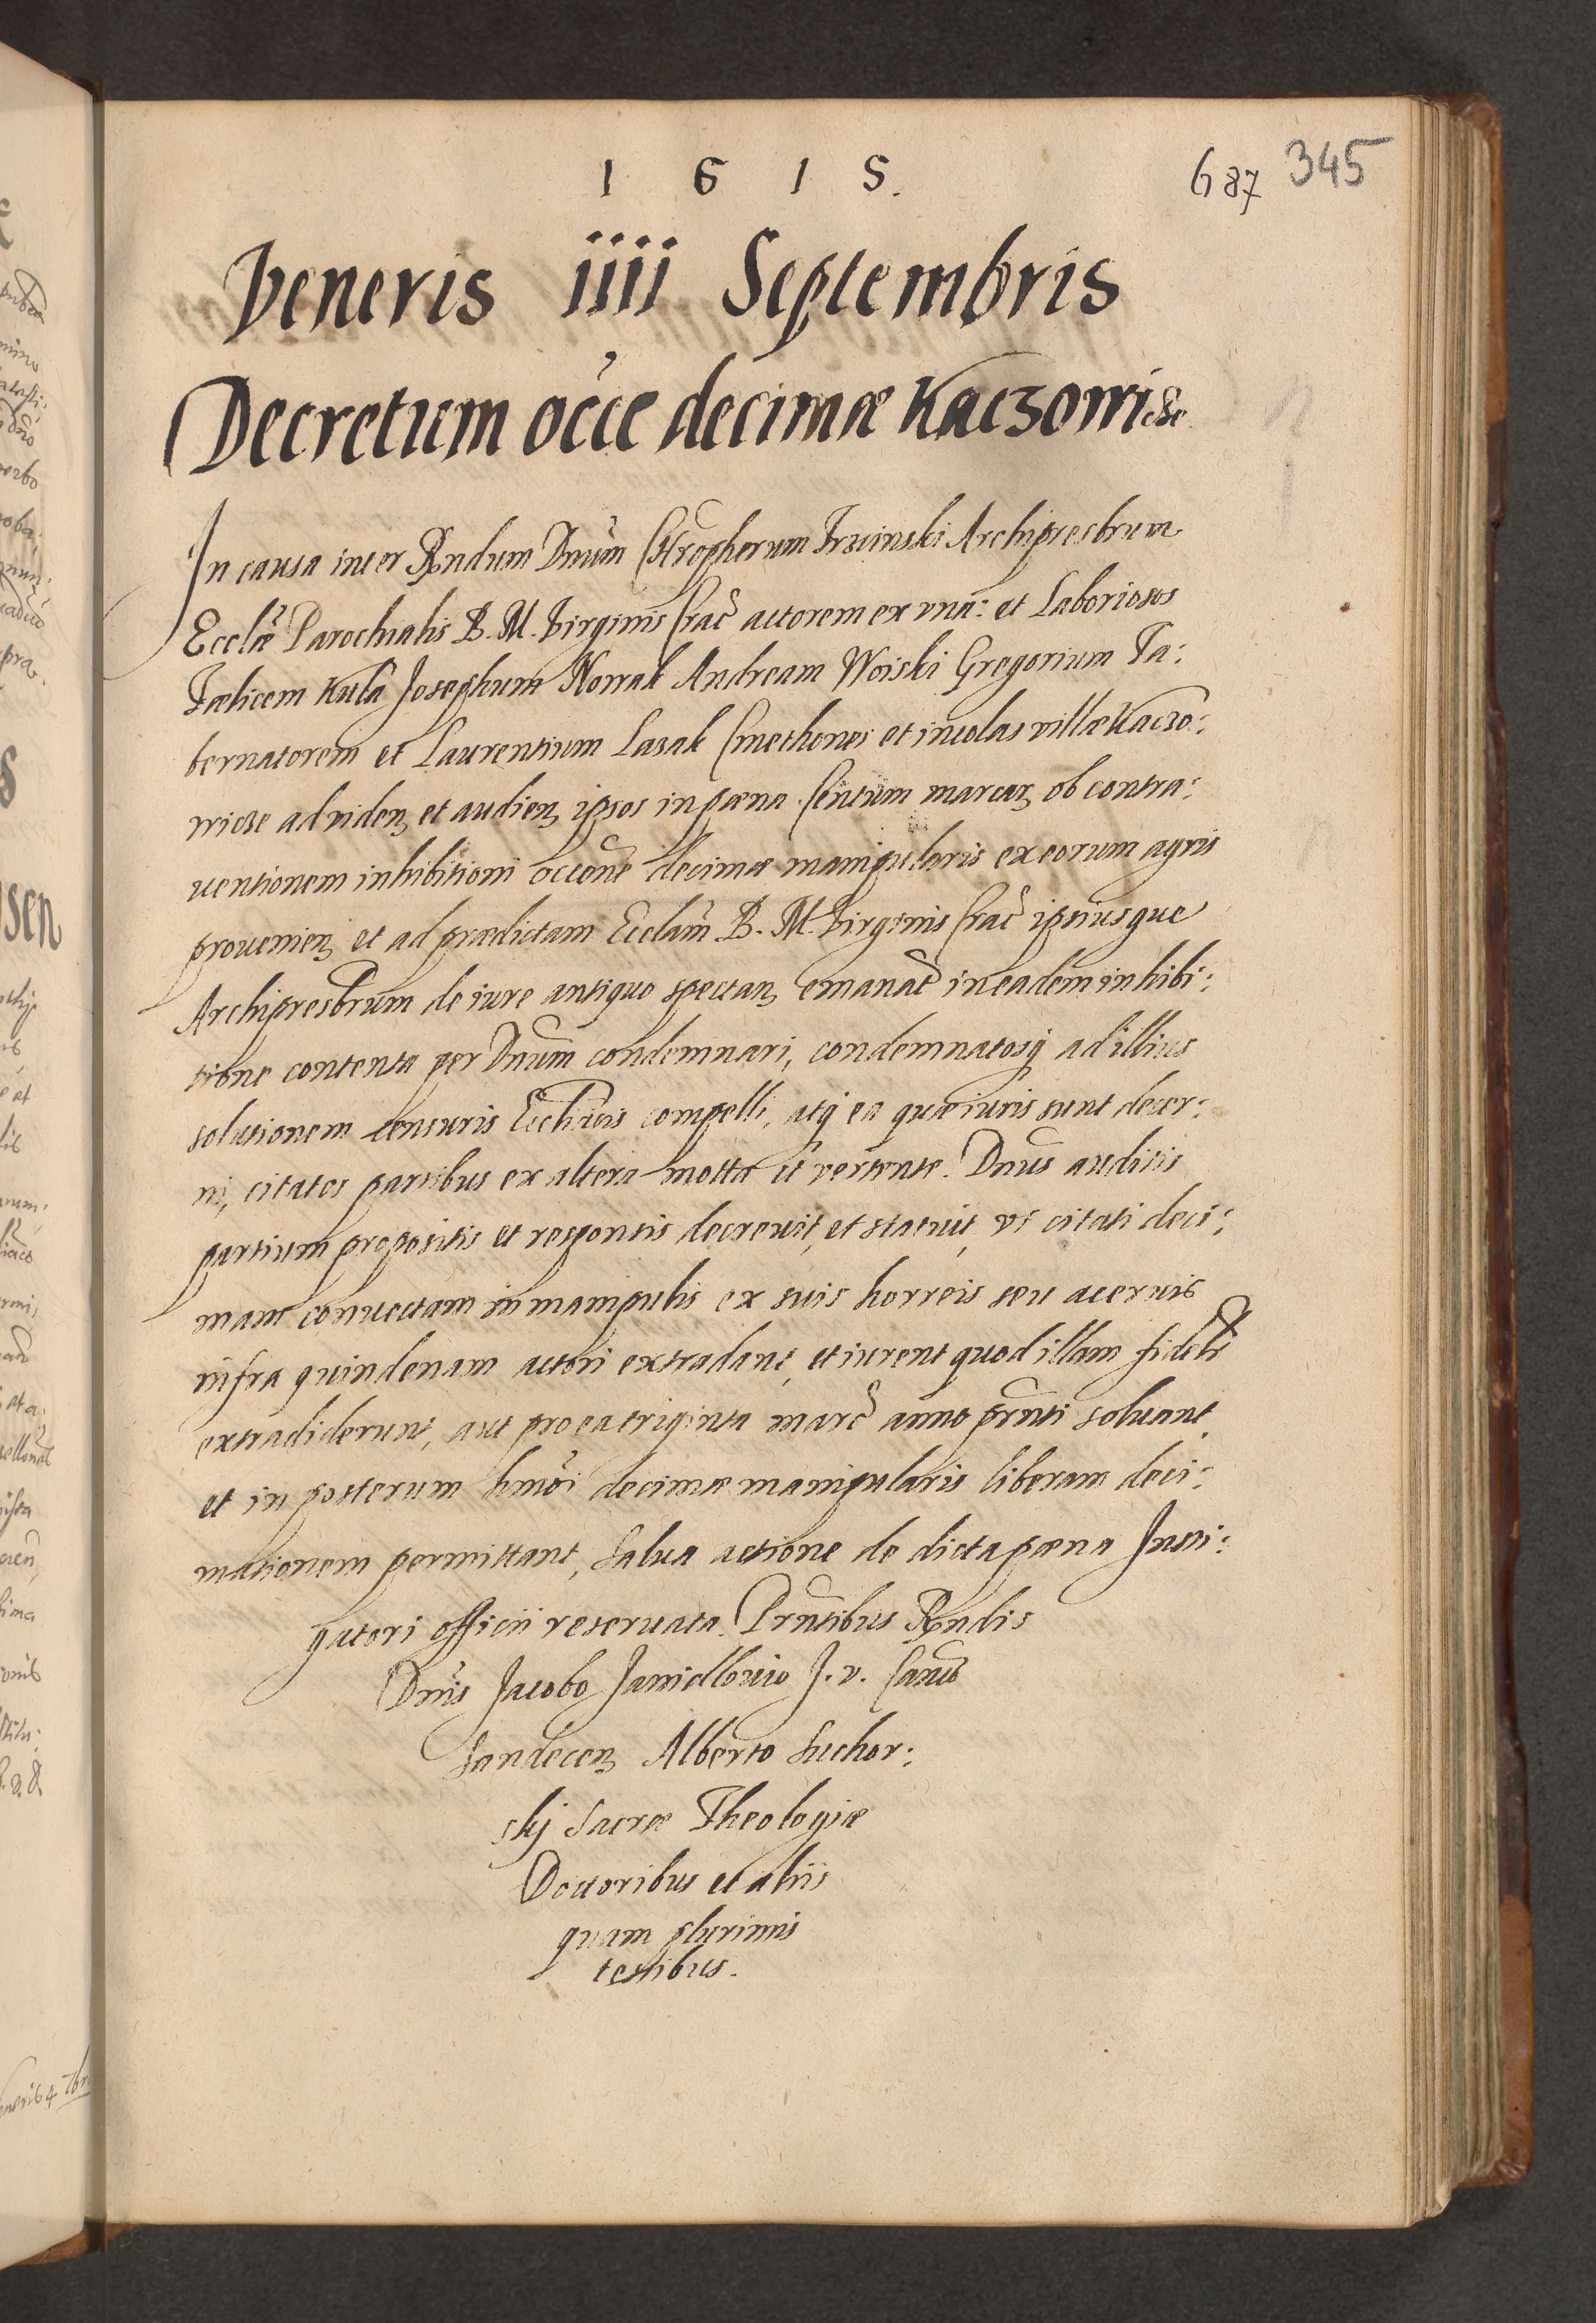 1 6 1 5.
687 345
Veneris iiii Septembris
Decretum occe decimæ Kaczowicze
In causa inter Rndum Dnum Chrophorum Trzcinski Archipresbrum
Ecclæ Parochialis B. M. Virginis Crac actorem ex vna: et Laboriosos
Fælicem Kula Josephum Nowak Andream Woiski Gregorium Ta:
bernatorem et Laurentium Lasak Cmethones et incolas villæ Kaczo:
wicze ad viden et audien ipsos in pæna Centum marcar ob contra:
uentionem inhibitioni occone decimæ manipularis ex eorum agris
prouenien et ad prædictam Ecclam B. M. Virginis Crac ipsiusque
Archipresbrum de iure antiquo spectan emanat in eadem inhibi:
tione contenta per Dnum condemnari, condemnatosq ad illius
solutionem censuris Ecclicis compelli, atq ea quæ iuris sunt decer:
ni, citatos partibus ex altera motta et vertente. Dnus auditis
partium propositis et responsis decreuit, et statuit, vt citati deci:
mam conuectam in manipulis ex suis horreis seu aceruis
infra quindenam actori extradant, et iurent quod illam fideli
extradiderunt, aut pro ea triginta marc anno prnti soluant,
et in posterum hmoi decimæ manipularis liberam deci:
mationem permittant, Salua actione de dicta pæna Insti:
gatori officii reseruata. Prntibus Rndis
Dnis Jacobo Janidlouio J. v. Cano
Sandecen Alberto Suchor:
skij Sacræ Theologiæ
Doctoribus et aliis
quam plurimis
testibus.